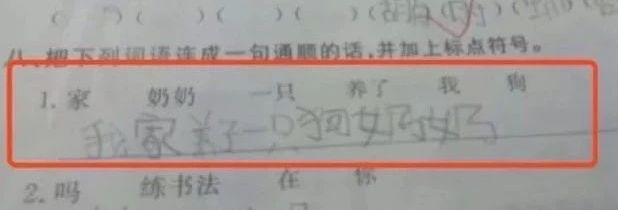 （ ）（ ）（ ）（ ）（
八、把下列词语连成一句通顺的话,并加上标点符号。
1. 家 奶奶 一只 养了 我 狗
我家养了一只狗奶奶
2. 吗 练书法 在 你